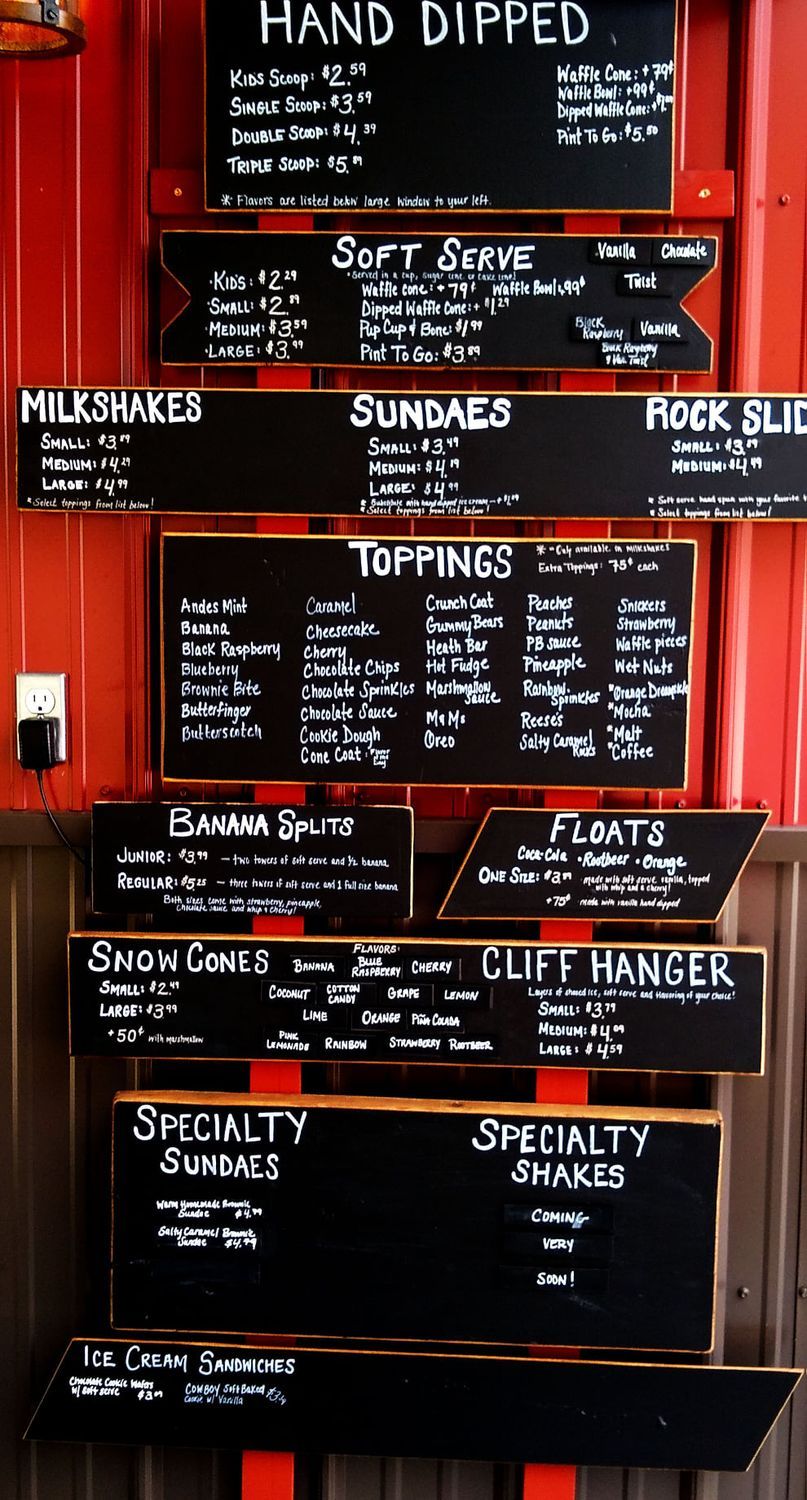 HAND DIPPED
KIDS SCOOP: $2.59
SINGLE SCOOP: $3.59
DOUBLE SCOOP: $4.39
TRIPLE SCOOP: $5.
Waffle Cone: + 79¢
Waffle Bowl: +99¢
Dipped Waffle Cone: +
Pint To Go: $5.
* Flavors are listed below large window to your left.
SOFT SERVE
*Served in a cup, sugar cone or cake cone!
·KID'S: $2.29
·SMALL: $2.
·MEDIUM: $3.59
·LARGE: $3.99
Waffle Cone: + 79¢ Waffle Bowl: +99¢
Dipped Waffle Cone: + $1.29
Pup Cup & Bone: $1.99
Pint To Go: $3.89
Vanilla Chocolate
Twist
Black Raspberry Vanilla
Black Raspberry
& Van. Twist
MILKSHAKES
SMALL: $3.
MEDIUM: $4.29
LARGE: $4.99
*Select toppings from list below!
SUNDAES
SMALL: $3.49
MEDIUM: $4.
LARGE: $4.99
* Substitute with hand dipped ice cream
* Select toppings from list below!
ROCK SLID
SMALL: $3.
MEDIUM: $4.
* Soft serve hand spun with your favorite
* Select toppings from list below!
TOPPINGS
* = Only available in milkshakes
Extra Toppings: 75¢ each
Andes Mint
Banana
Black Raspberry
Blueberry
Brownie Bite
Butterfinger
Butterscotch
Caramel
Cheesecake
Cherry
Chocolate Chips
Chocolate Sprinkles
Chocolate Sauce
Cookie Dough
Cone Coat:
Crunch Coat
Gummy Bears
Heath Bar
Hot Fudge
Marshmallow
Sauce
M&Ms
Oreo
Peaches
Peanuts
PB Sauce
Pineapple
Rainbow
Sprinkles
Reese's
Salty Caramel
Rocks
Snickers
Strawberry
Waffle pieces
Wet Nuts
*Orange Dreamsicle
*Mocha
*Malt
*Coffee
BANANA SPLITS
JUNIOR: $3.99 — two towers of soft serve and ½ banana
REGULAR: $5.25 — three towers of soft serve and 1 full size banana
Both sizes come with strawberry, pineapple,
chocolate sauce and whip & cherry!
FLOATS
Coca-Cola • Rootbeer • Orange
ONE SIZE: $3. made with soft serve vanilla, topped
with whip and a cherry!
+75¢ made with vanilla hand dipped
SNOW CONES
SMALL: $2.49
LARGE: $3.99
+50¢ with marshmallow
FLAVORS:
BANANA BLUE RASPBERRY CHERRY
COCONUT COTTON CANDY GRAPE LEMON
LIME ORANGE PIÑA COLADA
PINK LEMONADE RAINBOW STRAWBERRY ROOTBEER
CLIFF HANGER
Layers of shaved ice, soft serve and flavoring of your choice!
SMALL: $3.79
MEDIUM: $4.
LARGE: $4.59
SPECIALTY
SUNDAES
Warm Homemade Brownie
Sundae $4.79
Salty Caramel Brownie
Sundae $4.79
SPECIALTY
SHAKES
COMING
VERY
SOON!
ICE CREAM SANDWICHES
Chocolate Cookie Wafers
w/ soft serve $3.
COWBOY Soft Baked
Cookie w/ Vanilla